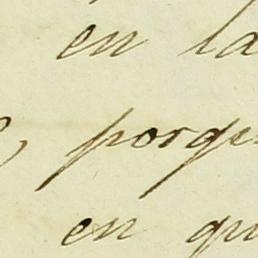 en la
porqu
en qu